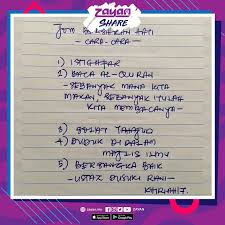 ZAYAN
SHARE
JOM BERSIHKAN HATI
- CARA-CARA -
1) ISTIGHFAR
2) BACA AL-QURAN
- SEBANYAK MANA KITA
MAKAN, SEBANYAK ITULAH
KITA MEMBACANYA-
3) SOLAT TAHAJUD
4) DUDUK DI DALAM
MAJLIS ILMU
5) BERSANGKA BAIK
- USTAZ DUSUKI RANI -
ZAYAN